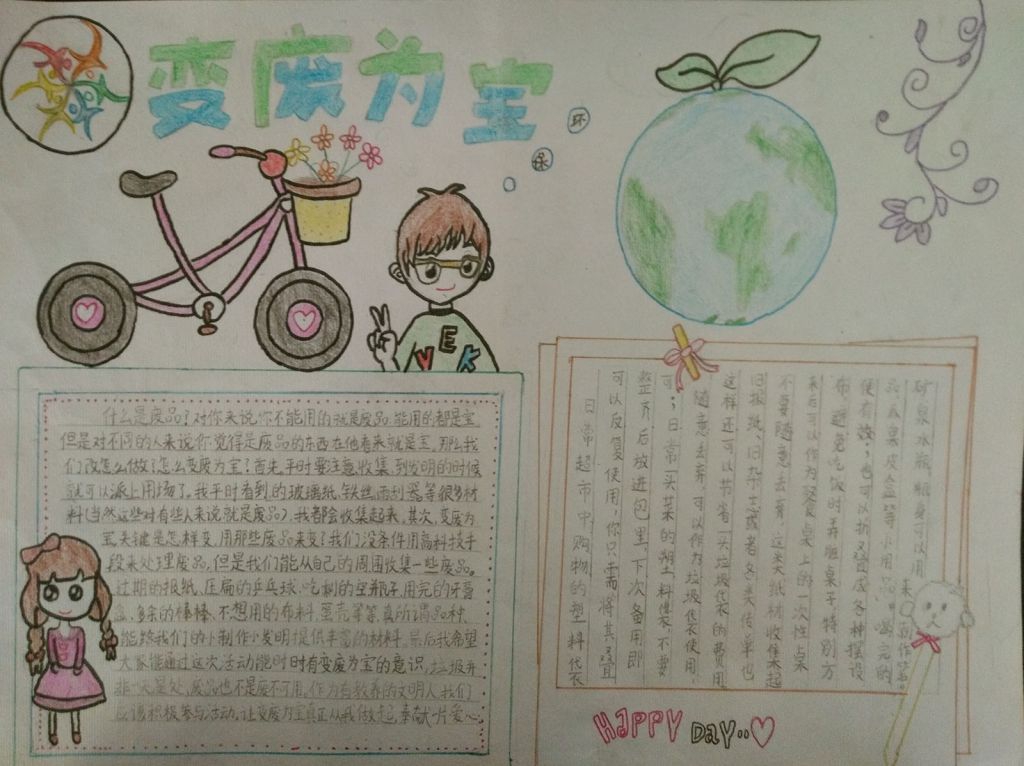 变废为宝
环
保
VEK
什么是废品?对你来说你不能用的就是废品,能用的都是宝
但是对不同的人来说你觉得是废品的东西在他看来就是宝,那么我
们改怎么做?怎么变废为宝?首先,平时要注意收集,到发明的时候
就可以派上用场了。我平时看到的玻璃纸,铁丝,雨刮器等很多材
料(当然这些对有些人来说就是废品),我都会收集起来。其次,变废为
宝关键是怎样变,用那些废品来变?我们没条件用高科技手
段来处理废品,但是我们能从自己的周围收集一些废品。
过期的报纸,压扁的乒乓球,吃剩的空瓶子,用完的牙膏
盒,多余的棒棒,不想用的布料,蛋壳等等,真所谓品种
能给我们的小制作小发明提供丰富的材料。然后我希望
大家能通过这次活动能时时有变废为宝的意识,垃圾并
非一无是处,废品也不是废不可用。作为有教养的文明人,我们
应该积极参与活动,让变废为宝真正从我做起,奉献一片爱心
矿泉水瓶,瓶身可以用来
品。瓜果皮盒等小用品。喝完的
便有效;也可以折叠成各种摆设
布,避免吃饭时弄脏桌子,特别方
来后可以作为餐桌上的一次性桌
不要随意去弃,这类纸材收集起
旧报纸、旧杂志或者各类传单也
这样还可以节省一买垃圾袋的费用
随意去弃,可以作为垃圾袋使用,
可;日常买菜的塑料袋不要
整齐后放进包里,下次备用即
可以反复使用,你只需将其叠
日常超市中购物的塑料袋
HAPPY DAY..